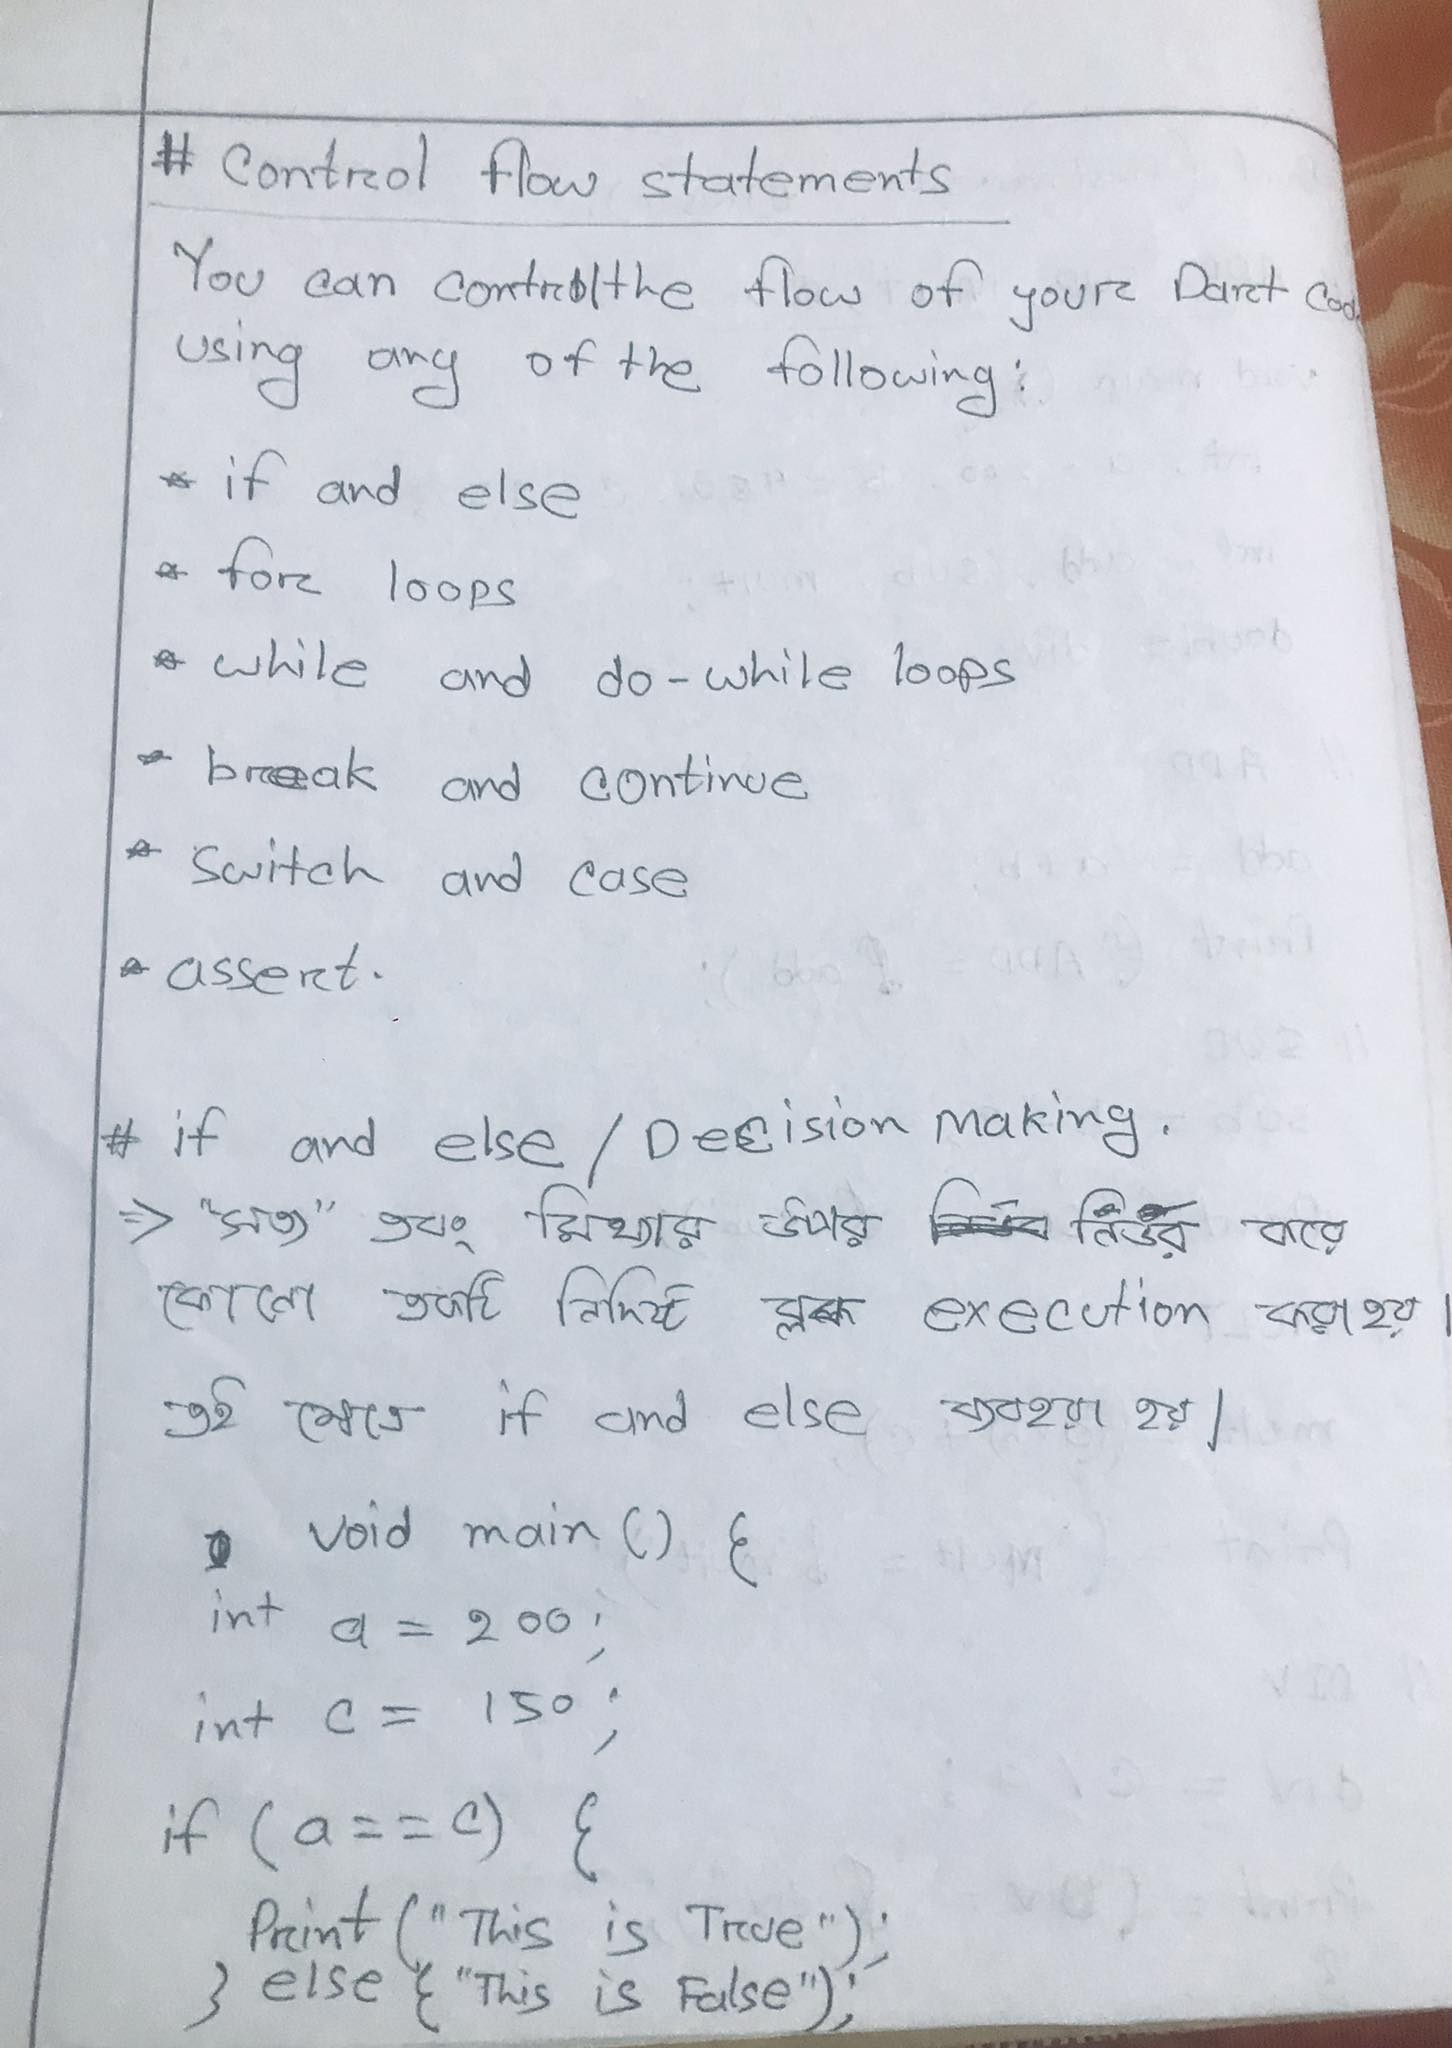 # Control flow statements
You can control the flow of your Dart Cod
using any of the following:
* if and else
* for loops
* while and do-while loops
* break and continue
* Switch and case
* assert.
# if and else / Decision Making.
=> "সত্য" এবং মিথ্যার উপর নির্ভর করে
কোনো একটি নির্দিষ্ট ব্লক execution করা হয়।
এই ক্ষেত্রে if and else ব্যবহার হয়।
void main () {
int a = 200;
int c = 150;
if (a==c) {
Print ("This is True");
} else { "This is False");